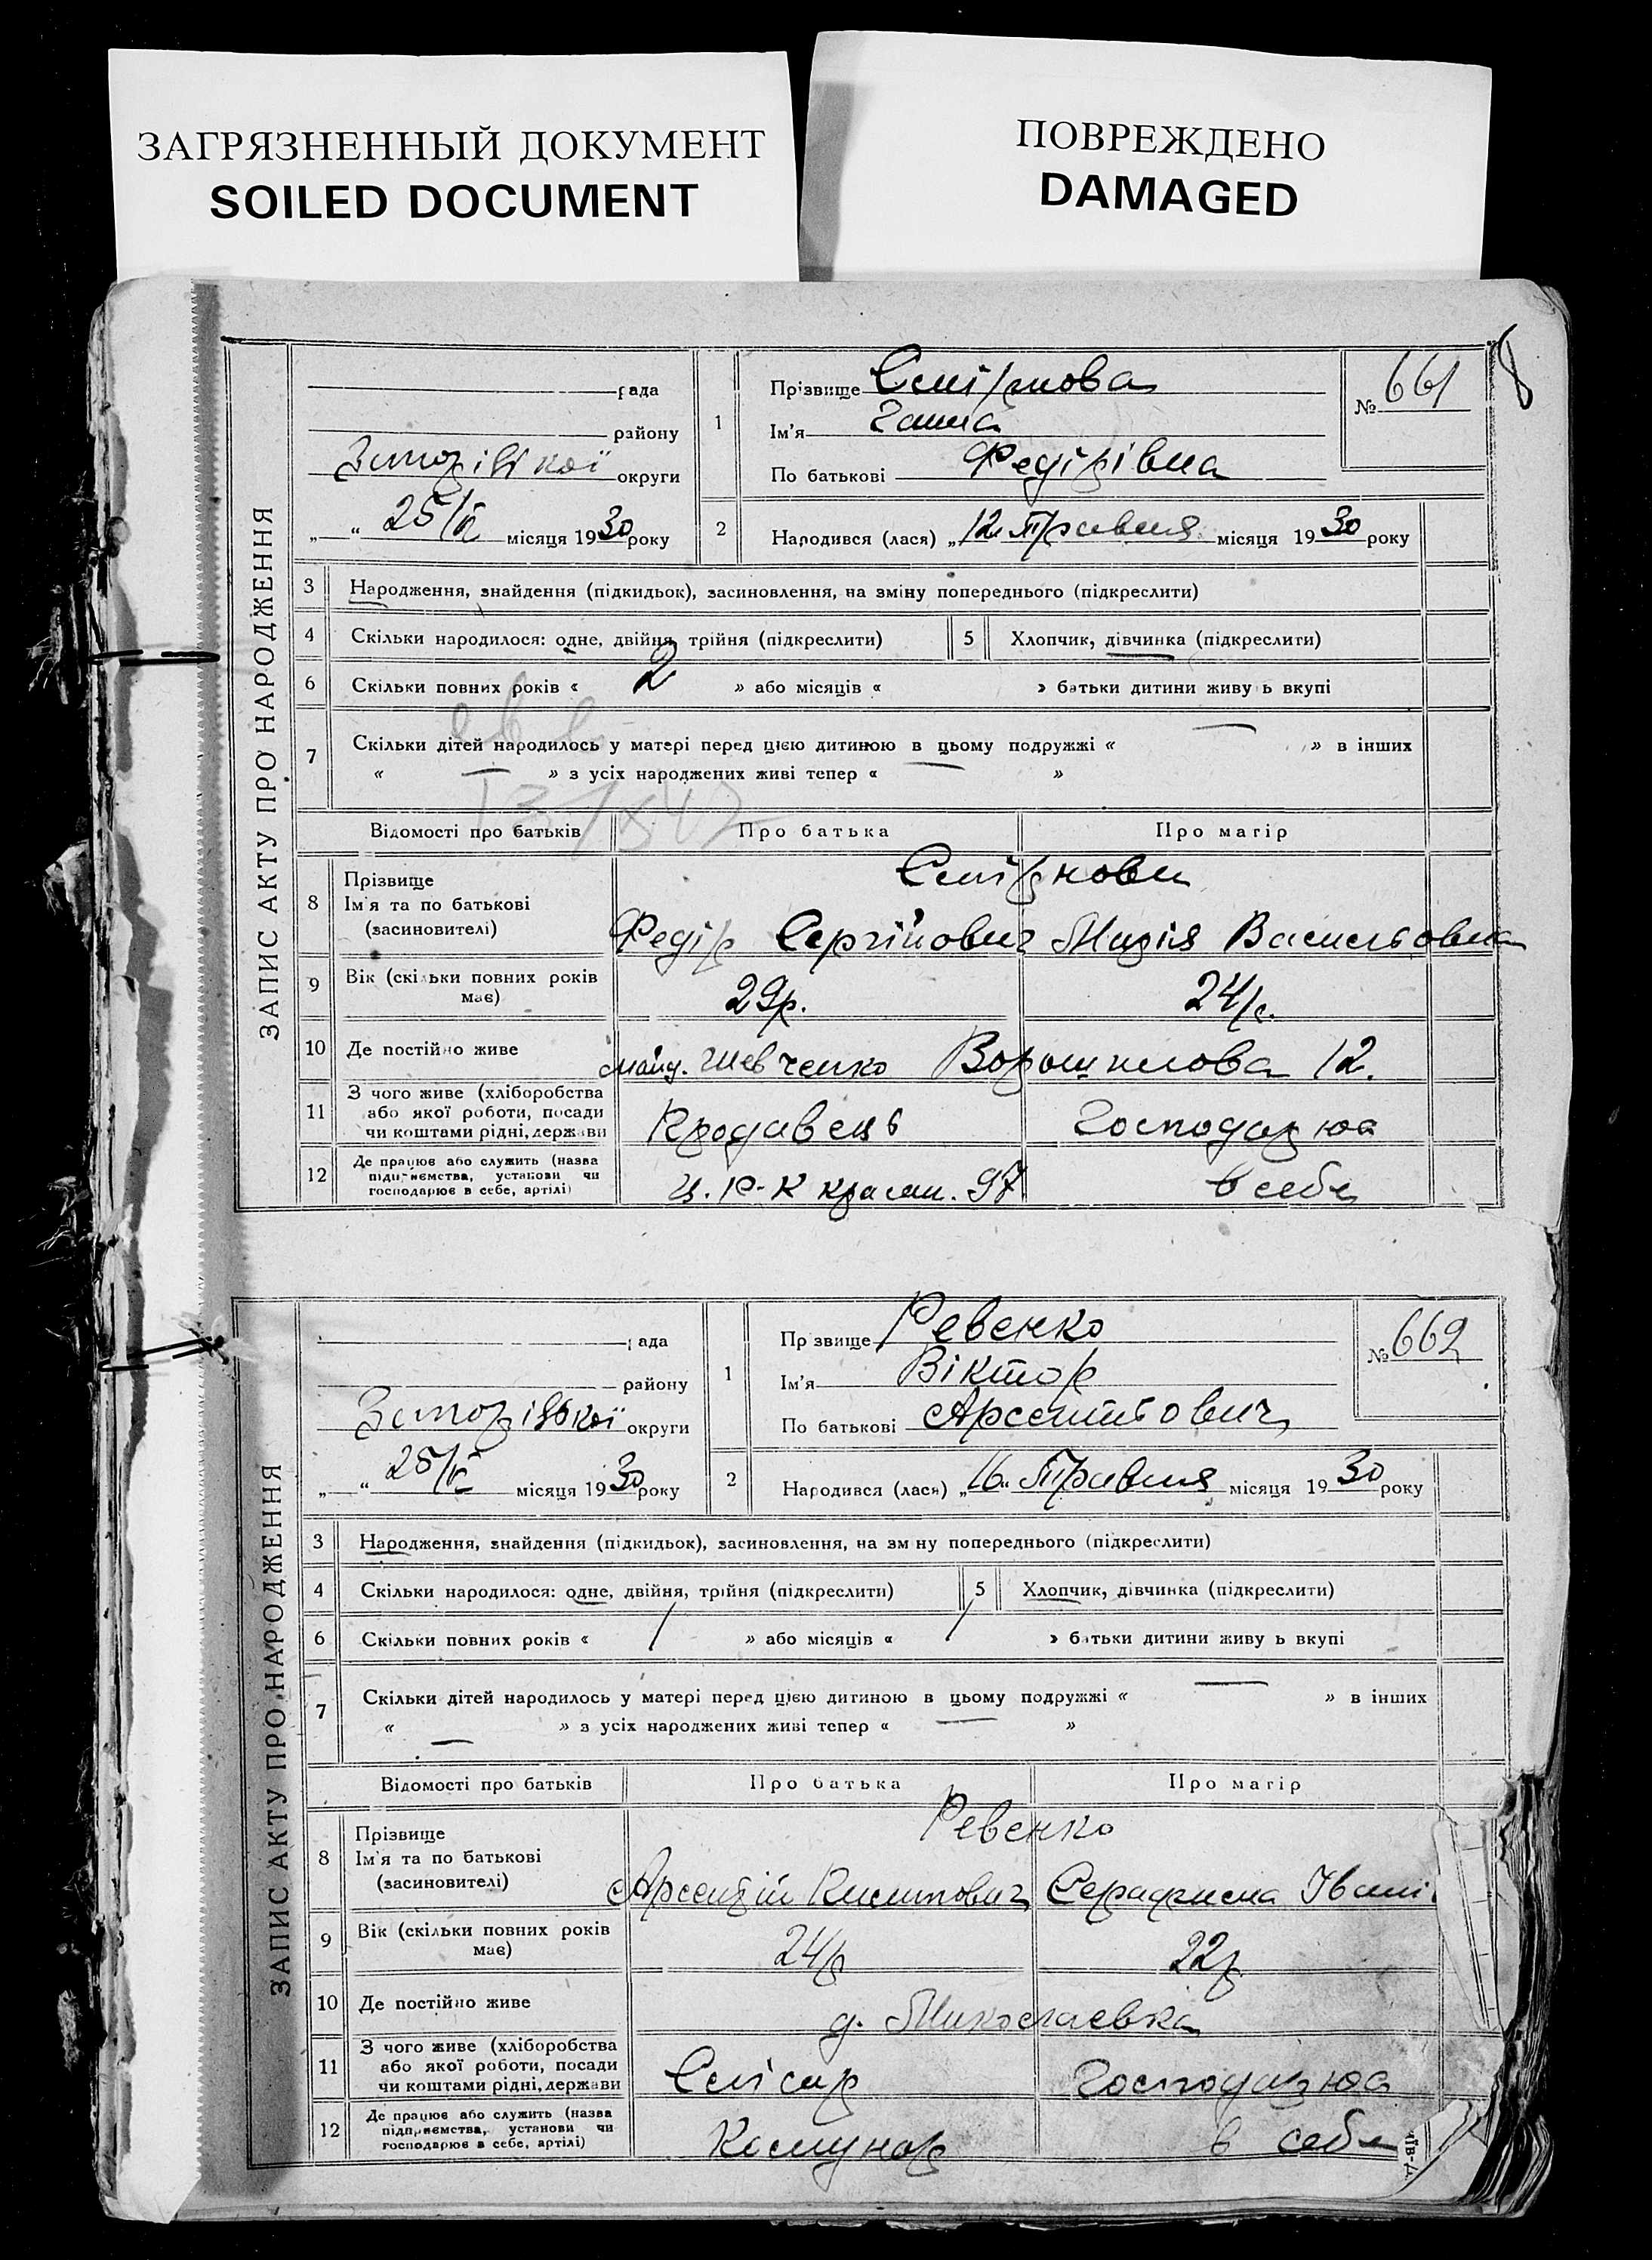 ЗАГРЯЗНЕННЫЙ ДОКУМЕНТ
SOILED DOCUMENT
ПОВРЕЖДЕНО
DAMAGED
8
ЗАПИС АКТУ ПРО НАРОДЖЕННЯ
рада
району
округи
" " 25/V місяця 1930 року
1
Прізвище
Ім'я Ганна
По батькові Федірівна
№ 661
2 Народився (лася) „12" Травня місяця 1930 року
3 Народження, знайдення (підкидьок), засиновлення, на зміну попереднього (підкреслити)
4 Скільки народилося: одне, двійня, трійня (підкреслити) 5 Хлопчик, дівчинка (підкреслити)
6 Скільки повних років « 2 » або місяців « » батьки дитини живуть вкупі
7 Скільки дітей народилось у матері перед цією дитиною в цьому подружжі « — » в інших
« — » з усіх народжених живі тепер « — »
Відомості про батьків Про батька Про матір
8 Прізвище
Ім'я та по батькові
(засиновителі)
Федір Сергійович Марія Васильовна
9 Вік (скільки повних років має) 29р. 24р.
10 Де постійно живе майд. Шевченко Ворошилова 12.
11 З чого живе (хліборобства або якої роботи, посади чи коштами рідні, держави Продавець Господарює
12 Де працює або служить (назва підприємства, установи чи господарює в себе, артілі) Ц.Р.К 97 в себе
ЗАПИС АКТУ ПРО НАРОДЖЕННЯ
рада
району
округи
" " 25/V місяця 1930 року
1
Прізвище Ревенко
Ім'я Віктор
По батькові Арсентьович
№ 662
2 Народився (лася) „16" Травня місяця 1930 року
3 Народження, знайдення (підкидьок), засиновлення, на зміну попереднього (підкреслити)
4 Скільки народилося: одне, двійня, трійня (підкреслити) 5 Хлопчик, дівчинка (підкреслити)
6 Скільки повних років « / » або місяців « / » батьки дитини живуть вкупі
7 Скільки дітей народилось у матері перед цією дитиною в цьому подружжі « — » в інших
« — » з усіх народжених живі тепер « — »
Відомості про батьків Про батька Про матір
8 Прізвище
Ім'я та по батькові
(засиновителі)
Ревенко
Арсентій Серафима Івані
9 Вік (скільки повних років має) 24р 22р
10 Де постійно живе д. Миколаевка
11 З чого живе (хліборобства або якої роботи, посади чи коштами рідні, держави Слісар Господарює
12 Де працює або служить (назва підприємства, установи чи господарює в себе, артілі) Комунар в себе